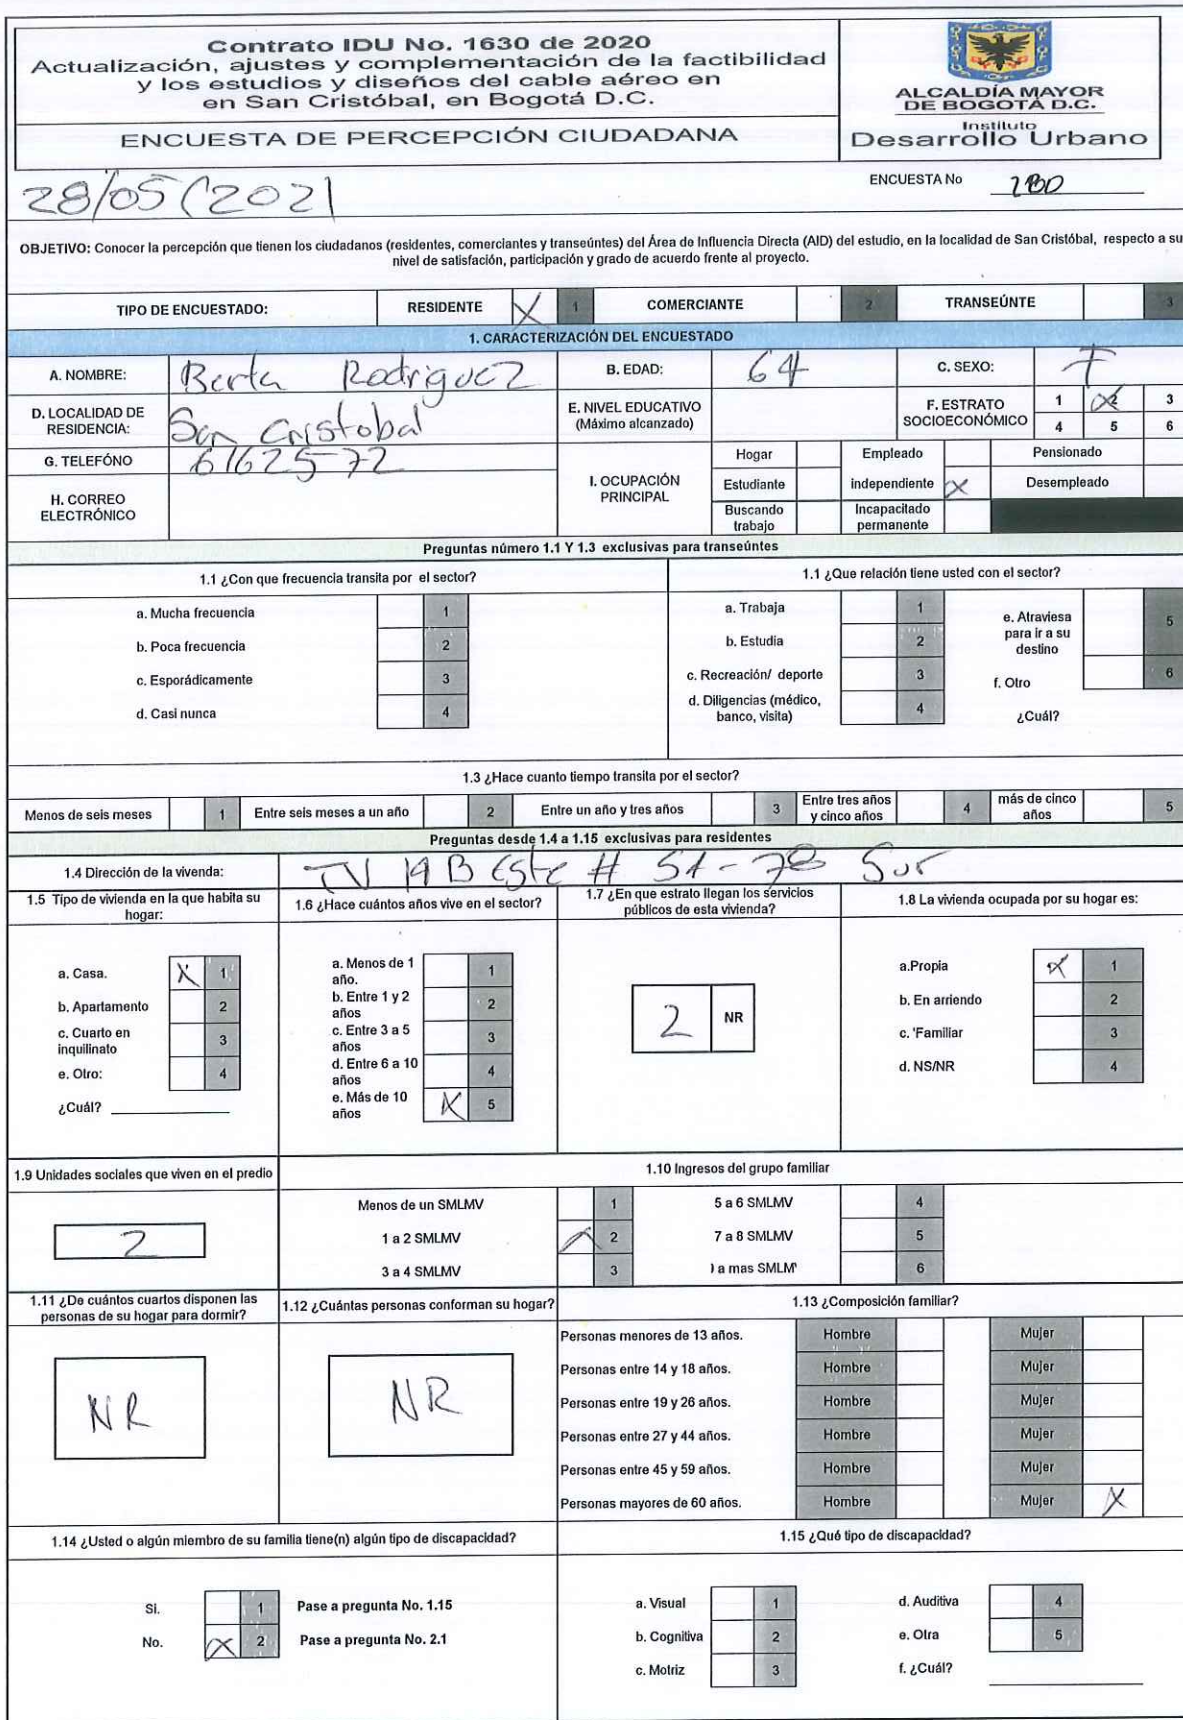 Contrato IDU No. 1630 de 2020
Actualización, ajustes y complementación de la factibilidad
y los estudios y diseños del cable aéreo en
en San Cristóbal, en Bogotá D.C.
ENCUESTA DE PERCEPCIÓN CIUDADANA
ALCALDÍA MAYOR
DE BOGOTÁ D.C.
Instituto
Desarrollo Urbano
28/05/2021
ENCUESTA No
OBJETIVO: Conocer la percepción que tienen los ciudadanos (residentes, comerciantes y transeúntes) del Área de Influencia Directa (AID) del estudio, en la localidad de San Cristóbal, respecto a su
nivel de satisfacción, participación y grado de acuerdo frente al proyecto.
TIPO DE ENCUESTADO: RESIDENTE X 1 COMERCIANTE 2 TRANSEÚNTE 3
1. CARACTERIZACIÓN DEL ENCUESTADO
A. NOMBRE: Berta Rodriguez B. EDAD: 64 C. SEXO: F
D. LOCALIDAD DE RESIDENCIA: San Cristobal E. NIVEL EDUCATIVO (Máximo alcanzado) F. ESTRATO SOCIOECONÓMICO 1 X 3
4 5 6
G. TELEFÓNO 6162572 I. OCUPACIÓN PRINCIPAL Hogar Empleado Pensionado
H. CORREO ELECTRÓNICO Estudiante independiente X Desempleado
Buscando trabajo Incapacitado permanente
Preguntas número 1.1 Y 1.3 exclusivas para transeúntes
1.1 ¿Con que frecuencia transita por el sector?
a. Mucha frecuencia 1
b. Poca frecuencia 2
c. Esporádicamente 3
d. Casi nunca 4
1.1 ¿Que relación tiene usted con el sector?
a. Trabaja 1
b. Estudia 2
c. Recreación/ deporte 3
d. Diligencias (médico, banco, visita) 4
e. Atraviesa para ir a su destino 5
f. Otro 6
¿Cuál?
1.3 ¿Hace cuanto tiempo transita por el sector?
Menos de seis meses 1 Entre seis meses a un año 2 Entre un año y tres años 3 Entre tres años y cinco años 4 más de cinco años 5
Preguntas desde 1.4 a 1.15 exclusivas para residentes
1.4 Dirección de la vivenda: TV 19 B Este # 51-78 Sur
1.5 Tipo de vivienda en la que habita su hogar:
a. Casa. X 1
b. Apartamento 2
c. Cuarto en inquilinato 3
e. Otro: 4
¿Cuál?
1.6 ¿Hace cuántos años vive en el sector?
a. Menos de 1 año. 1
b. Entre 1 y 2 años 2
c. Entre 3 a 5 años 3
d. Entre 6 a 10 años 4
e. Más de 10 años X 5
1.7 ¿En que estrato llegan los servicios públicos de esta vivienda?
2 NR
1.8 La vivienda ocupada por su hogar es:
a.Propia X 1
b. En arriendo 2
c. 'Familiar 3
d. NS/NR 4
1.9 Unidades sociales que viven en el predio
2
1.10 Ingresos del grupo familiar
Menos de un SMLMV 1 5 a 6 SMLMV 4
1 a 2 SMLMV X 2 7 a 8 SMLMV 5
3 a 4 SMLMV 3 a mas SMLM 6
1.11 ¿De cuántos cuartos disponen las personas de su hogar para dormir?
NR
1.12 ¿Cuántas personas conforman su hogar?
NR
1.13 ¿Composición familiar?
Personas menores de 13 años. Hombre Mujer
Personas entre 14 y 18 años. Hombre Mujer
Personas entre 19 y 26 años. Hombre Mujer
Personas entre 27 y 44 años. Hombre Mujer
Personas entre 45 y 59 años. Hombre Mujer
Personas mayores de 60 años. Hombre Mujer X
1.14 ¿Usted o algún miembro de su familia tiene(n) algún tipo de discapacidad?
Si. 1 Pase a pregunta No. 1.15
No. X 2 Pase a pregunta No. 2.1
1.15 ¿Qué tipo de discapacidad?
a. Visual 1 d. Auditiva 4
b. Cognitiva 2 e. Otra 5
c. Motriz 3 f. ¿Cuál?